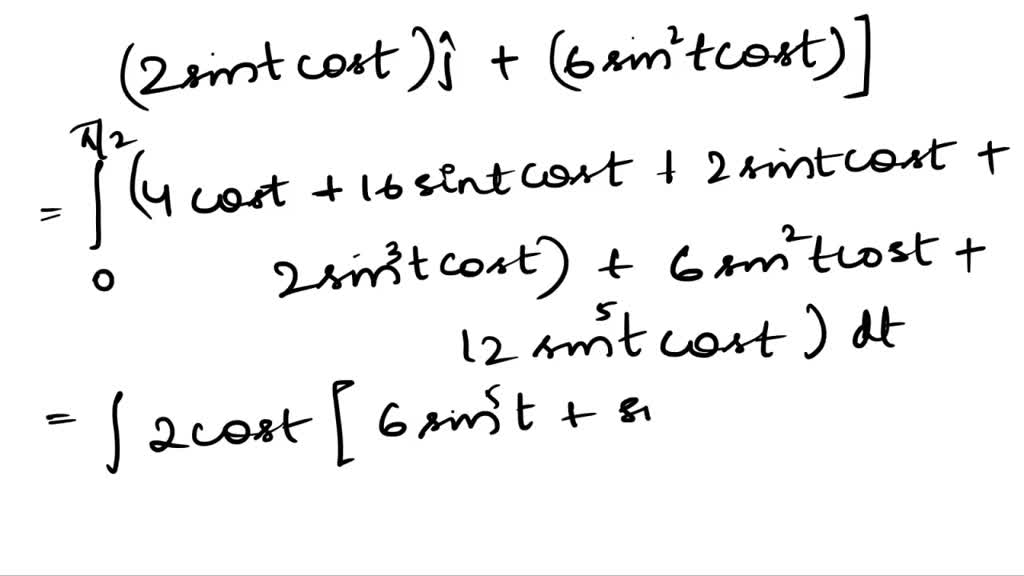 (2sint cost)ĵ + (6sin²tcost)]
π/2
= ∫ (4cost + 16sint cost + 2sint cost +
0 2sin³t cost) + 6sin²tcost +
12 sin⁵t cost) dt
= ∫ 2cost [ 6sin⁵t + si